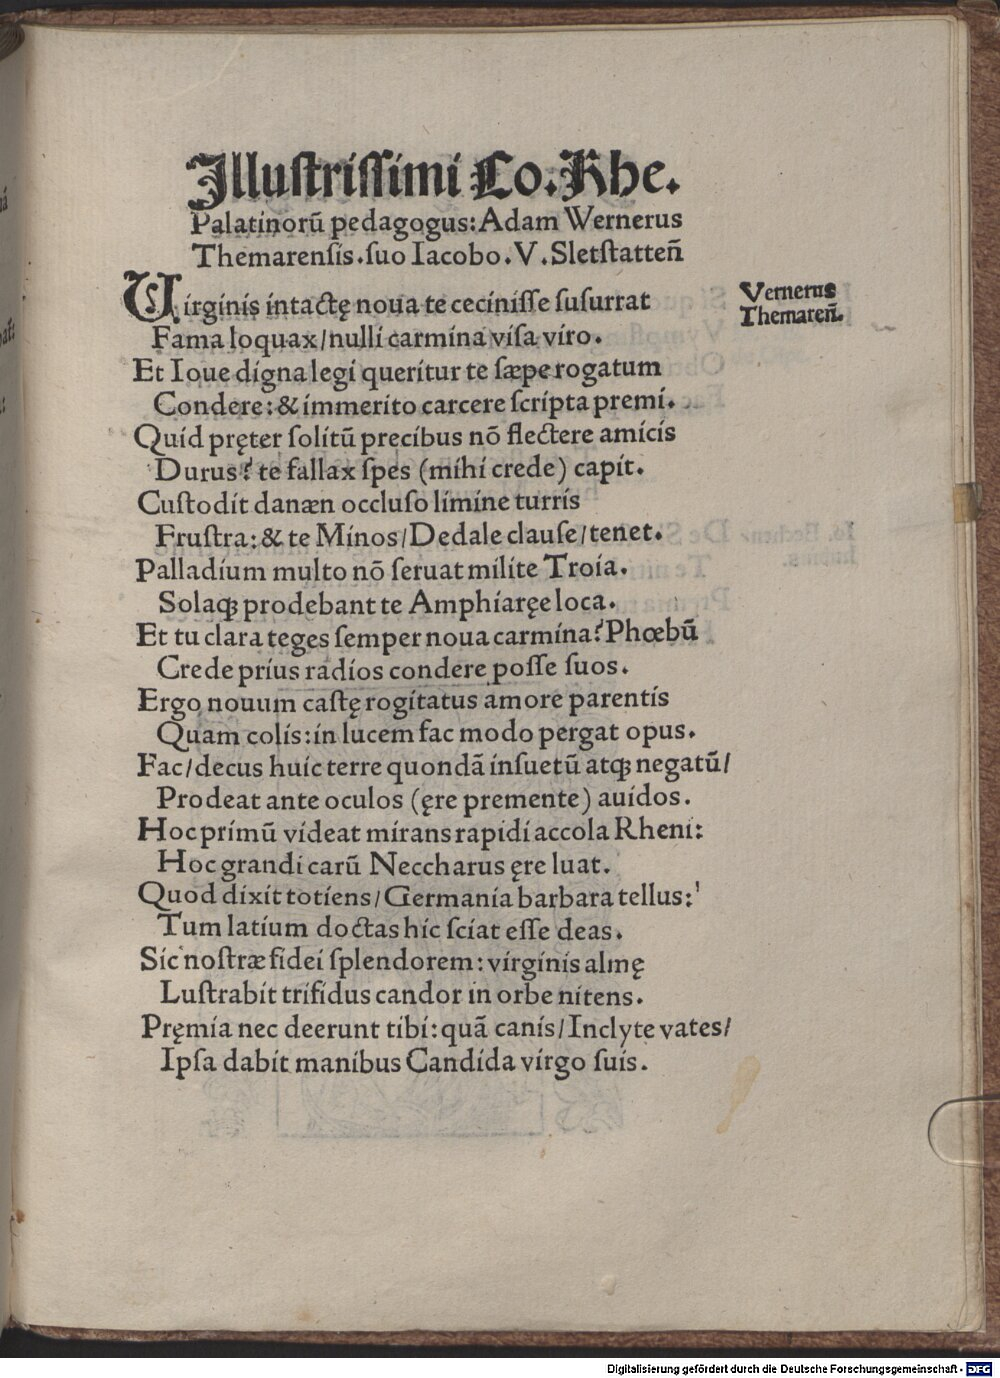 Illuſtriſſimi Co. Rhe.
Palatinorū pedagogus: Adam Wernerus
Themarenſis. ſuo Iacobo. V. Sletſtatten̄
Virginis intactę noua te ceciniſſe ſuſurrat
Vernerus
Themaren̄.
Fama loquax/nulli carmina viſa viro.
Et Ioue digna legi queritur te ſæpe rogatum
Condere: & immerito carcere ſcripta premi.
Quid pręter ſolitū precibus nō flectere amicis
Durus? te fallax ſpes (mihi crede) capit.
Cuſtodit danæn occluſo limine turris
Fruſtra: & te Minos/Dedale clauſe/tenet.
Palladium multo nō ſeruat milite Troia.
Solaqꝫ prodebant te Amphiaręe loca.
Et tu clara teges ſemper noua carmina? Phœbū
Crede prius radios condere poſſe ſuos.
Ergo nouum caſtę rogitatus amore parentis
Quam colis: in lucem fac modo pergat opus.
Fac/decus huic terre quondā inſuetū atqꝫ negatū/
Prodeat ante oculos (ęre premente) auidos.
Hoc primū videat mirans rapidi accola Rheni:
Hoc grandi carū Neccharus ęre luat.
Quod dixit totiens/Germania barbara tellus:
Tum latium doctas hic ſciat eſſe deas.
Sic noſtræ fidei ſplendorem: virginis almę
Luſtrabit trifidus candor in orbe nitens.
Pręmia nec deerunt tibi: quā canis/Inclyte vates/
Ipſa dabit manibus Candida virgo ſuis.
Digitalisierung gefördert durch die Deutsche Forschungsgemeinschaft - DFG